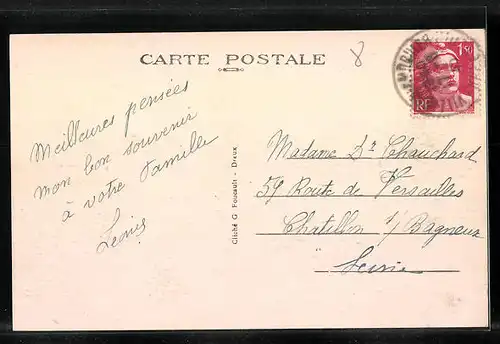 CARTE POSTALE
8
1F50
RF
Meilleures pensées
mon bon souvenir
à votre famille
Louis
Cliché G. Foucault - Dreux
Madame Dr Chauchard
59 Route de Versailles
Chatillon s/ Bagneux
Seine